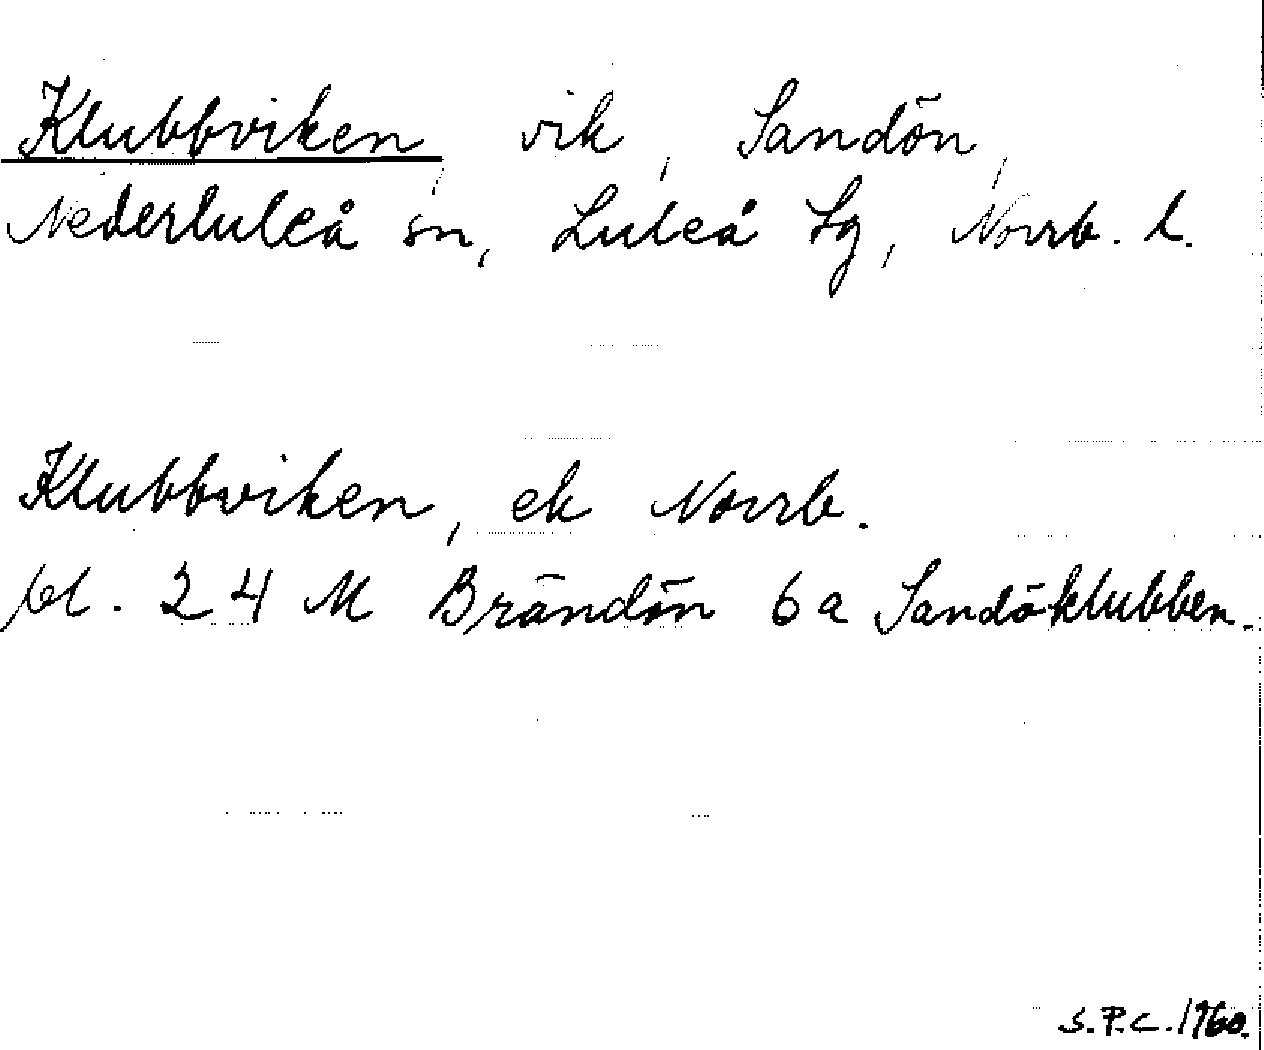 Klubbviken, vik, Sandön,
Nederluleå sn, Luleå lg, Norrb. l.
Klubbviken, ek Norrb.
bl. 24 M Brändön 6a Sandöklubben.
S.P.C. 1960.